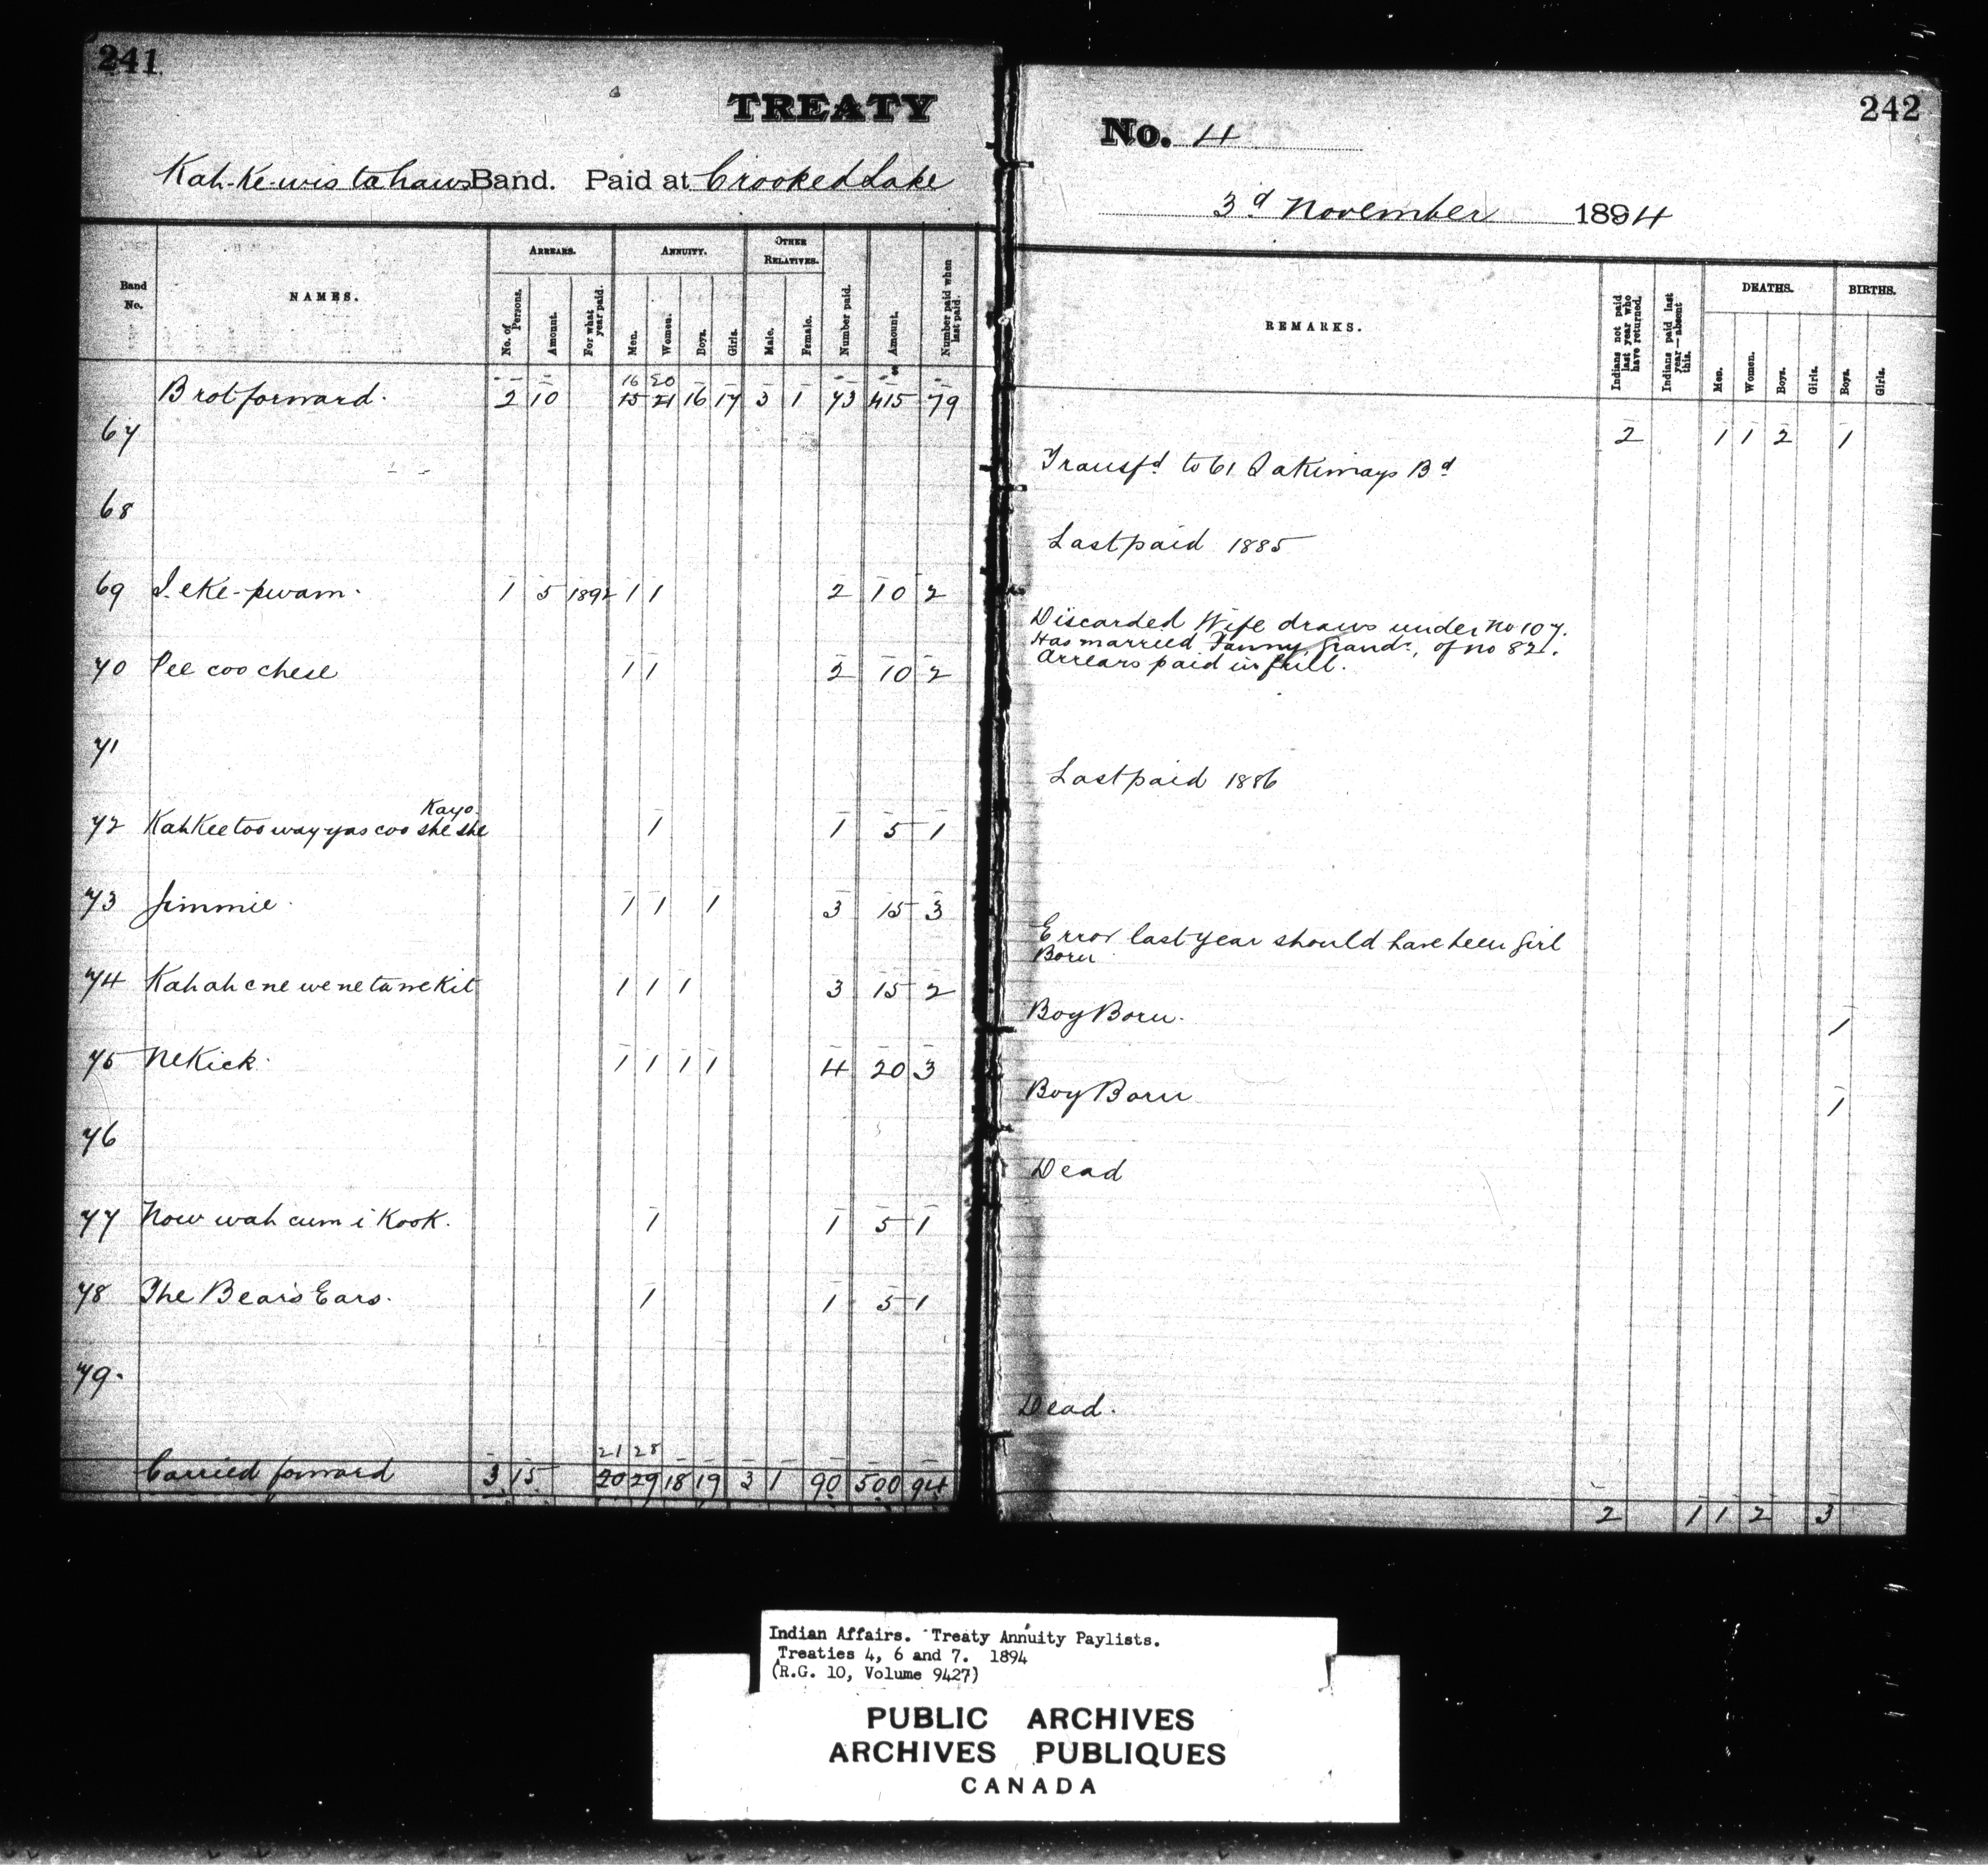 241
TREATY
Kah-Ke-wis tahaws Band. Paid at Crooked Lake
No. 4
242
3d November 1894
Band No.
NAMES.
ARREARS.
No. of Persons.
Amount.
For what year paid.
ANNUITY.
Men.
Women.
Boys.
Girls.
OTHER RELATIVES.
Male.
Female.
Number paid.
Amount.
Number paid when last paid.
REMARKS.
Indians not paid last year who have returned.
Indians paid last year—absent this.
DEATHS.
Men.
Women.
Boys.
Girls.
BIRTHS.
Boys.
Girls.
16 20
Brot forward. 2 10 15 21 16 17 3 1 73 415 79 2 1 1 2 1
67 Transfd to 61 Sakimays Bd
68 Last paid 1885
69 1 5 1892 1 1 2 10 2
Discarded Wife draws under No 107.
Has married Fanny, Grandr., of no 82.
Arrears paid in full.
70 Pee coo chese 1 1 2 10 2
71 Last paid 1886
Kayo
72 Kah Kee too way yas coo she she 1 1 5 1
73 Jimmie. 1 1 1 3 15 3
Error last year should have been Girl
Born
74 1 1 1 3 15 2 Boy Born. 1
75 Nekick. 1 1 1 1 4 20 3 Boy Born 1
76 Dead
77 Now wah cum i Kook. 1 1 5 1
78 The Bear's Ears. 1 1 5 1
79. Dead.
21 28
Carried forward 3 15 20 29 18 19 3 1 90 500 94 2 1 1 2 3
Indian Affairs. Treaty Annuity Paylists.
Treaties 4, 6 and 7. 1894
(R.G. 10, Volume 9427)
PUBLIC ARCHIVES
ARCHIVES PUBLIQUES
CANADA